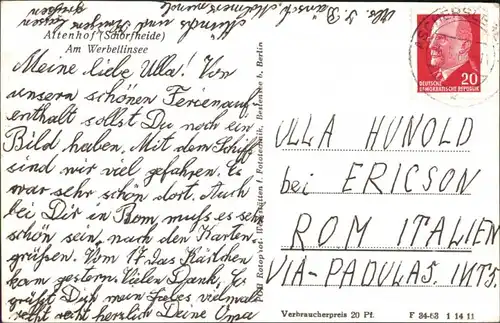 Altenhof (Schorfheide)
Am Werbellinsee
Meine liebe Ulla! Von
unserm schönen Ferienauf-
enthalt sollst Du noch ein
Bild haben. Mit dem Schiff
sind wir viel gefahren. Es
war sehr schön dort. Auch
bei Dir in Rom, muß es sehr
schön sein, nach den Karten-
grüßen. Vom 17. das Kärtchen
kam gestern. Vielen Dank. Es
grüßt Dich mein liebes vielmals
recht recht herzlich Deine Oma
und Grüßen lassen
VEB Rotophot-Werkstätten f. Fototechnik, Bestensee b. Berlin
DEUTSCHE
DEMOKRATISCHE REPUBLIK
20
ULLA HUNOLD
bei ERICSON
ROM ITALIEN
VIA-PADULAS. INTS.
Verbraucherpreis 20 Pf.
F 34-63 1 14 11